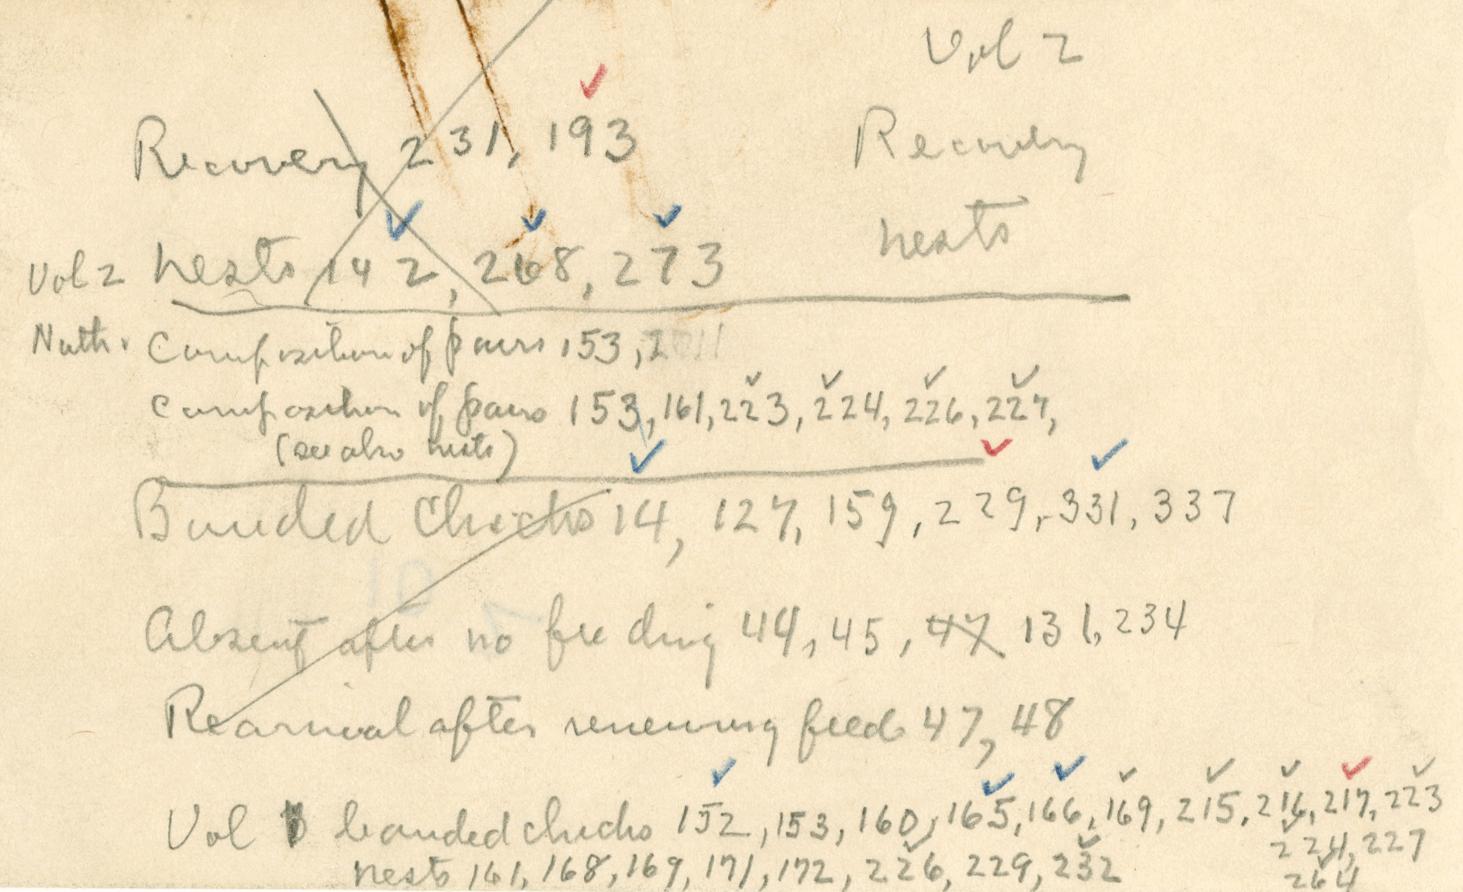 Vol 2
Recovery 231, 193
Recovery
nests
Vol 2 nests 142, 268, 273
Nuth. Composition of pairs 153, 2
Composition of pairs 153, 161, 223, 224, 226, 227,
(see also nests)
Banded Chicks 14, 127, 159, 229, 331, 337
Absent after no feeding 44, 45, 47 131, 234
Rearrival after renewing feed 47, 48
Vol banded chicks 152, 153, 160, 165, 166, 169, 215, 216, 217, 223
224, 227
nests 161, 168, 169, 171, 172, 226, 229, 232
264